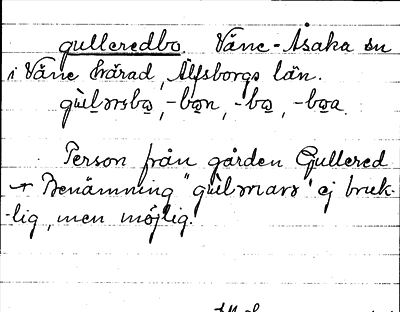 gulleredbo. Väne-Åsaka sn
i Väne härad, Älfsborgs län.
gùlərsbo, -bon, -bo, -boa.
Person från gården Gullered
Benämning "gùlərsars" ej bruk-
-lig, men möjlig.